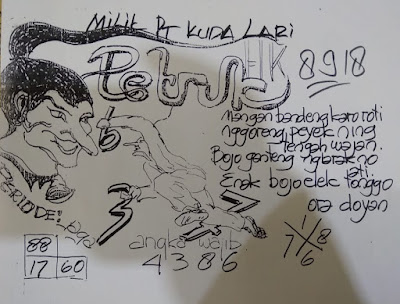 MILIK PT KUDA LARI
Petruk HK 8918
Mangan bandeng karo roti
nggoreng peyek ning
tengah wajan.
Bojo ganteng ngbrakno
ati.
Enak bojo elek tonggo
ora doyan
6
3 7
PERIODE:
angka wajib
4386
88
17 60
1
7 8
6